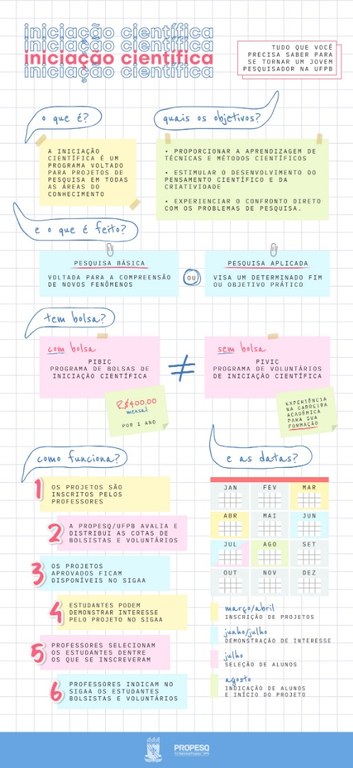 iniciação científica
iniciação científica
iniciação científica
iniciação científica
TUDO QUE VOCÊ
PRECISA SABER PARA
SE TORNAR UM JOVEM
PESQUISADOR NA UFPB
o que é?
A INICIAÇÃO
CIENTÍFICA É UM
PROGRAMA VOLTADO
PARA PROJETOS DE
PESQUISA EM TODAS
AS ÁREAS DO
CONHECIMENTO
quais os objetivos?
• PROPORCIONAR A APRENDIZAGEM DE
TÉCNICAS E MÉTODOS CIENTÍFICOS
• ESTIMULAR O DESENVOLVIMENTO DO
PENSAMENTO CIENTÍFICO E DA
CRIATIVIDADE
• EXPERIENCIAR O CONFRONTO DIRETO
COM OS PROBLEMAS DE PESQUISA.
e o que é feito?
PESQUISA BÁSICA
VOLTADA PARA A COMPREENSÃO
DE NOVOS FENÔMENOS
OU
PESQUISA APLICADA
VISA UM DETERMINADO FIM
OU OBJETIVO PRÁTICO
tem bolsa?
com bolsa
PIBIC
PROGRAMA DE BOLSAS DE
INICIAÇÃO CIENTÍFICA
R$400.00
mensal
POR 1 ANO
≠
sem bolsa
PIVIC
PROGRAMA DE VOLUNTÁRIOS
DE INICIAÇÃO CIENTÍFICA
EXPERIÊNCIA
NA CARREIRA
ACADÊMICA
PARA SUA
FORMAÇÃO
como funciona?
1 OS PROJETOS SÃO
INSCRITOS PELOS
PROFESSORES
2 A PROPESQ/UFPB AVALIA E
DISTRIBUI AS COTAS DE
BOLSISTAS E VOLUNTÁRIOS
3 OS PROJETOS
APROVADOS FICAM
DISPONÍVEIS NO SIGAA
4 ESTUDANTES PODEM
DEMONSTRAR INTERESSE
PELO PROJETO NO SIGAA
5 PROFESSORES SELECIONAM
OS ESTUDANTES DENTRE
OS QUE SE INSCREVERAM
6 PROFESSORES INDICAM NO
SIGAA OS ESTUDANTES
BOLSISTAS E VOLUNTÁRIOS
e as datas?
JAN FEV MAR
ABR MAI JUN
JUL AGO SET
OUT NOV DEZ
março/abril
INSCRIÇÃO DE PROJETOS
junho/julho
DEMONSTRAÇÃO DE INTERESSE
julho
SELEÇÃO DE ALUNOS
agosto
INDICAÇÃO DE ALUNOS
E INÍCIO DO PROJETO
PROPESQ